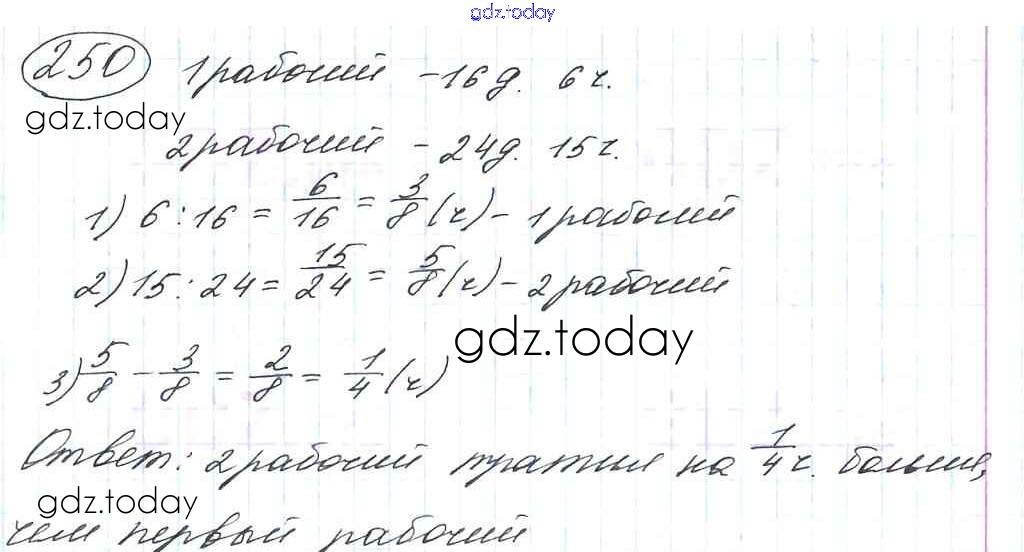 gdz.today
250 1 рабочий - 16 д. 6 ч.
gdz.today
2 рабочий - 24 д. 15 ч.
1) 6 : 16 = 6/16 = 3/8 (ч) - 1 рабочий
2) 15 : 24 = 15/24 = 5/8 (ч) - 2 рабочий
gdz.today
3) 5/8 - 3/8 = 2/8 = 1/4 (ч)
Ответ: 2 рабочий тратил на 1/4 ч. больше,
gdz.today
чем первый рабочий